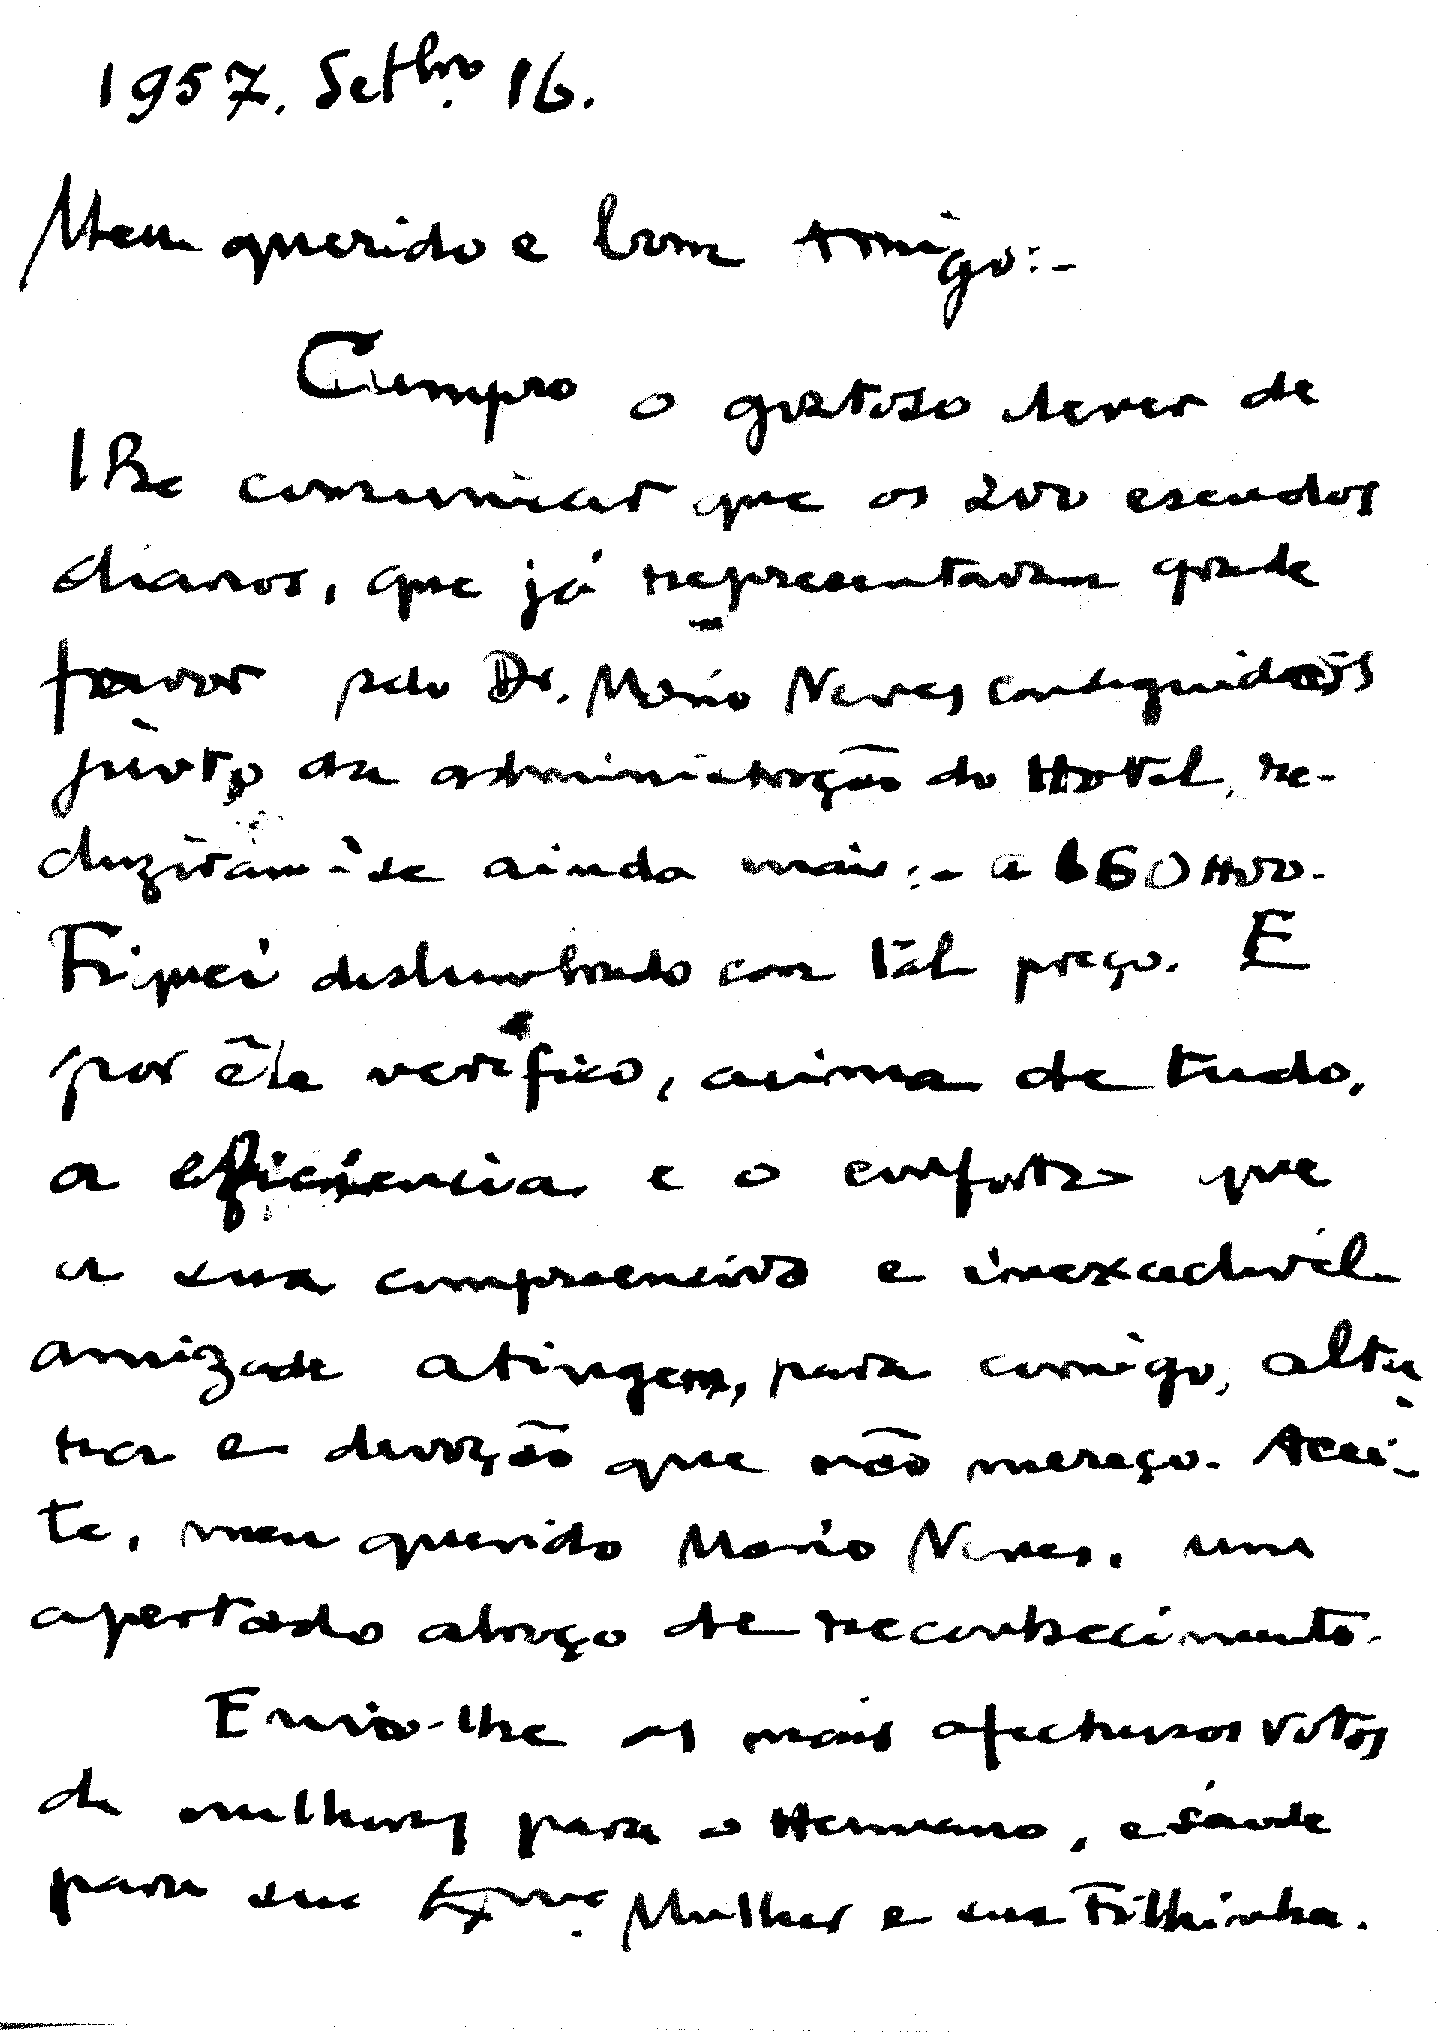 1957. Setbro. 16.
Meu querido e bom Amigo:-
Cumpro o gostoso dever de
lhe comunicar que os 200 escudos
diarios, que já representavam grande
favor pelo Dr. Mário Neves conseguido
junto da administração do Hotel, re-
duziram-se ainda mais:- a 160$00.
Fiquei deslumbrado com tal preço. E
por êle verifico, acima de tudo,
a eficiencia e o conforto que
a sua compreensiva e inexcedivel
amizade atingem, para comigo, altu
ra e devoção que não mereço. Acei-
te, meu querido Mario Neves, um
apertado abraço de reconhecimento.
Envio-lhe os mais afectuosos votos
de melhoras para o Hermano, e saude
para sua Exma. Mulher e sua Filhinha.